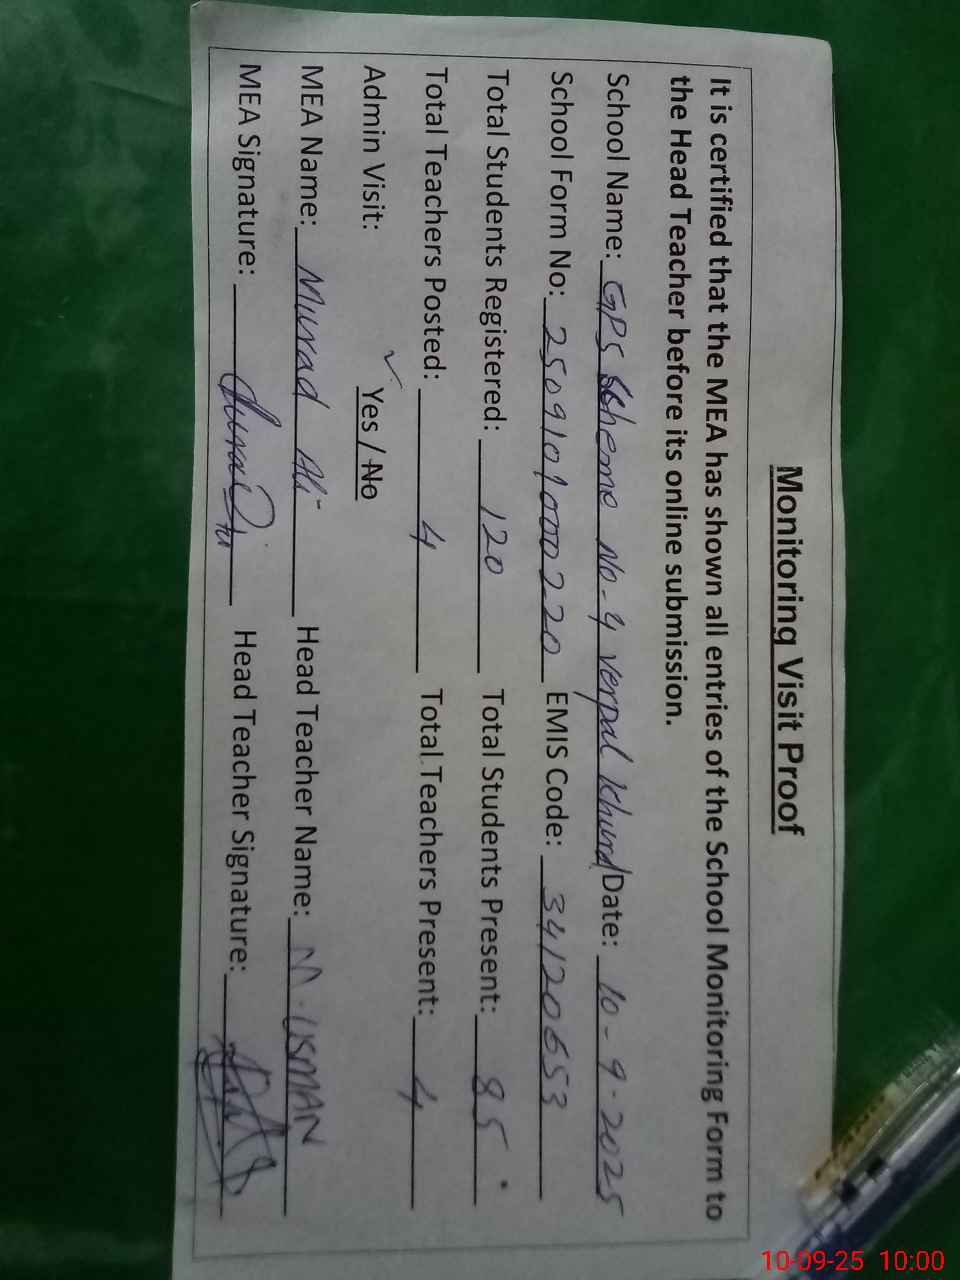 Monitoring Visit Proof
It is certified that the MEA has shown all entries of the School Monitoring Form to
the Head Teacher before its online submission.
School Name: GPS Scheme No-4 verpal khurd Date: 10-9-2025
School Form No: 2509101000220 EMIS Code: 34120653
Total Students Registered: 120 Total Students Present: 85
Total Teachers Posted: 4 Total Teachers Present: 4
Admin Visit: ✓ Yes / No
MEA Name: Murad Ali Head Teacher Name: M. USMAN
MEA Signature: Head Teacher Signature:
10-09-25 10:00